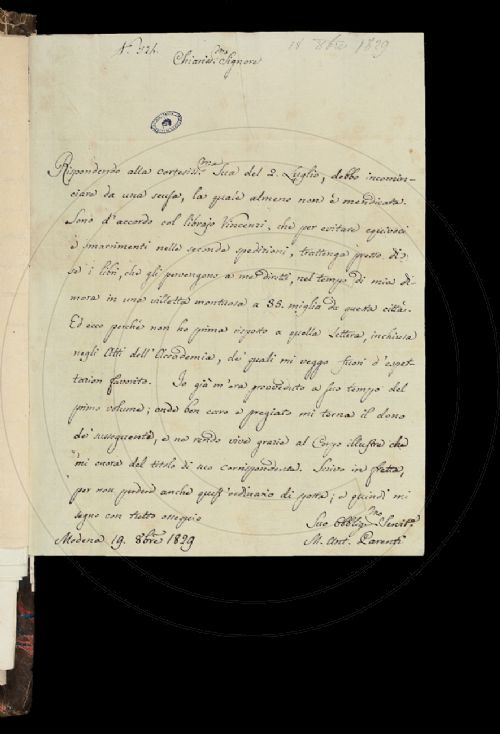 N.° 324.
18 8bre 1829
Chiariss.mo Signore
Rispondendo alla cortesiss.ma Sua del 2. Luglio, debbo incomin-
ciare da una scusa, la quale almeno non è mendicata.
Sono d'accordo col librajo Vincenzi, che per evitare equivoci
e smarrimenti nelle seconde spedizioni, trattenga presso di
se i libri, che gli pervengono a me diretti, nel tempo di mia di-
mora in una villetta montuosa a 35. miglia da questa città.
Ed ecco perché non ho prima risposto a quella lettera, inchiusa
negli Atti dell'Accademia, de' quali mi veggo fuori d'espet-
tazion favorito. Io già m'era provveduto a suo tempo del
primo volume; onde ben caro e pregiato mi torna il dono
de' susseguenti, e ne rendo vive grazie al Corpo illustre che
mi onora del titolo di suo corrispondente. Scrivo in fretta,
per non perdere anche quest'ordinario di posta; e quindi mi
segno con tutto ossequio
Suo Obblig.mo Servit.e
Modena 19. 8bre 1829
M. Ant. Parenti